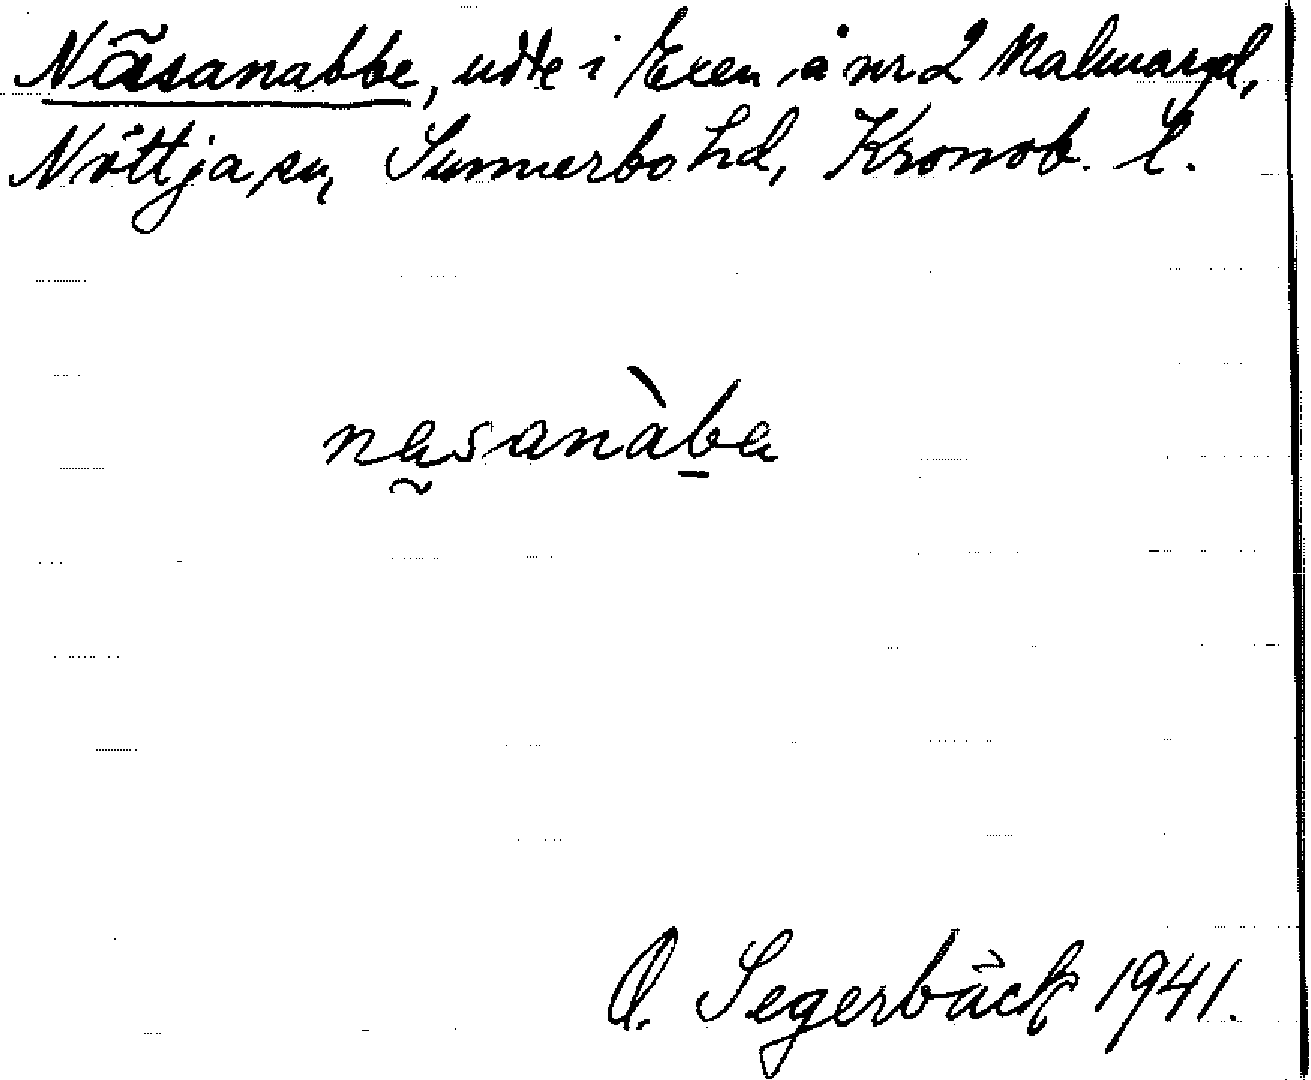 Näsanabbe, udde i Exen å nr 2 Malmaryd,
Nöttja sn, Sunnerbo hd, Kronob. l.
näsanàba
O. Segerbäck 1941.